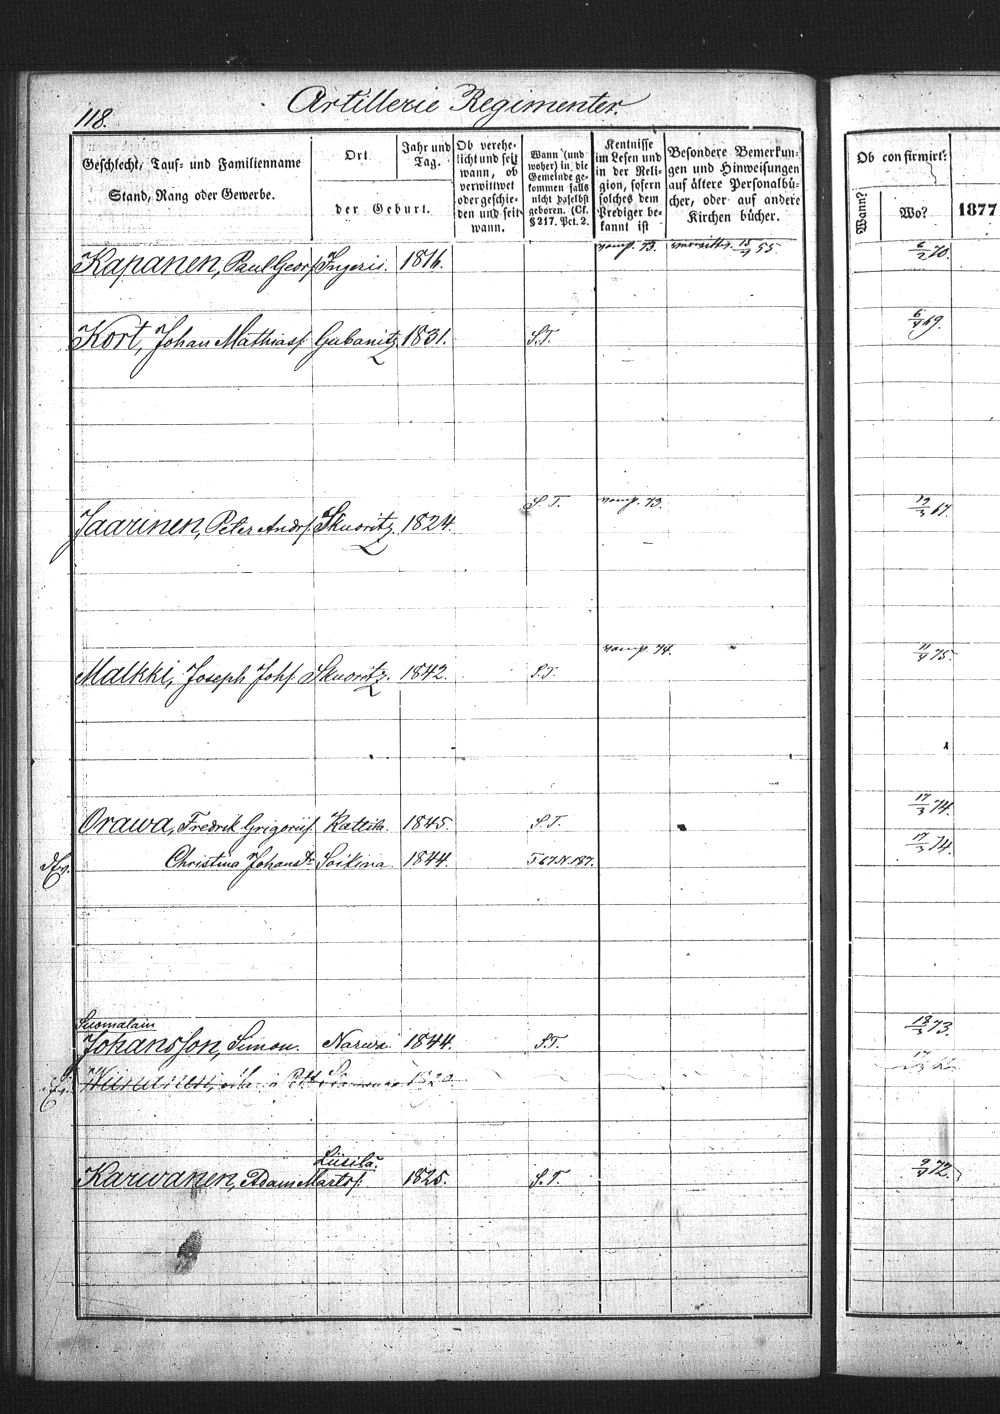 118.
Artillerie Regimenter.
Geschlecht, Tauf- und Familienname
Stand, Rang oder Gewerbe.
Ort
der Geburt.
Jahr und
Tag.
Ob verehe-
licht und seit
wann, ob
verwittwet
oder geschie-
den und seit
wann.
Wann (und
woher) in die
Gemeinde ge-
kommen falls
nicht daselbst
geboren. (Cf.
§ 217. Pct. 2.
Kentnisse
im Lesen und
in der Reli-
gion, sofern
solches dem
Prediger be-
kannt ist
Besondere Bemerkun-
gen und Hinweisungen
auf ältere Personalbü-
cher, oder auf andere
Kirchen bücher.
Ob confirmirt:
Wann?
Wo?
1877
Kapanen, Paul Georgs Ingeris. 1816. 73. 55 6/2 70.
Kort, Johan Mathiass Gubanitz 1831. S.T. 6/4 69.
Jaarinen, Peter Andrs Skuoritz. 1824. S.T. 73. 12/3 67.
Malkki, Joseph Johs. Skuoritz. 1842. S.T. 74. 11/9 75.
Orawa, Fredrik Grigoriis Kattila. 1845. S.T. 17/3 74.
Christina Johansdr Soikina 1844. T 67 N. 187. 17/3 74.
Suomalain
Johansson, Simon. Narwa 1844. S.T. 18/3 73.
1820
Liisilä.
Karwanen, Adam Martos. 1825. S.T. 9/4 72.